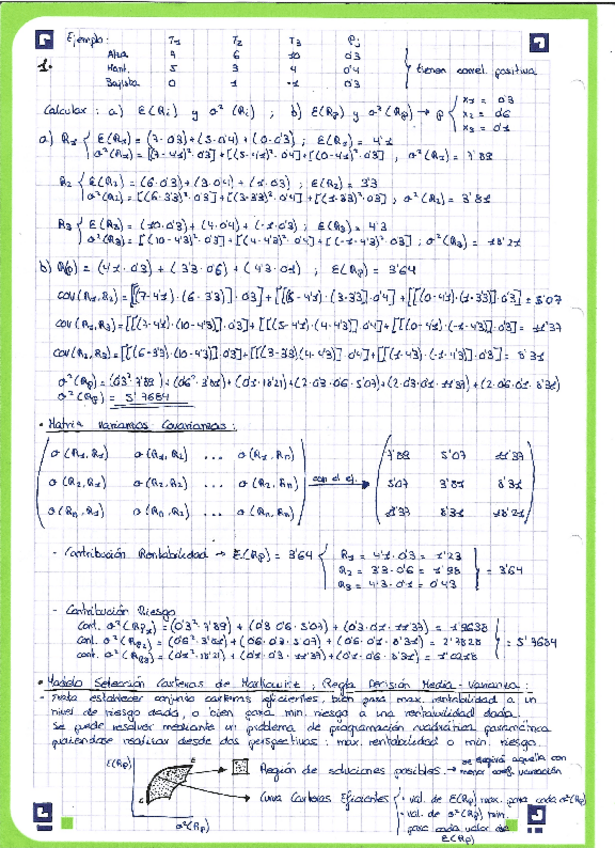 Ejemplo: T1 T2 T3 Pj
1. Alza 7 6 10 0'3
Mant. 5 3 4 0'4 } tienen correl. positiva
Bajista 0 1 -1 0'3
Calcular: a) E(Ri) y σ²(Ri); b) E(Rp) y σ²(Rp) → P { x1 = 0'3
x2 = 0'6
x3 = 0'1
a) R1 { E(R1) = (7·0'3) + (5·0'4) + (0·0'3); E(R1) = 4'1
σ²(R1) = [(7-4'1)²·0'3] + [(5-4'1)²·0'4] + [(0-4'1)²·0'3], σ²(R1) = 7'89
R2 { E(R2) = (6·0'3) + (3·0'4) + (1·0'3); E(R2) = 3'3
σ²(R2) = [(6-3'3)²·0'3] + [(3-3'3)²·0'4] + [(1-3'3)²·0'3]; σ²(R2) = 3'81
R3 { E(R3) = (10·0'3) + (4·0'4) + (-1·0'3); E(R3) = 4'3
σ²(R3) = [(10-4'3)²·0'3] + [(4-4'3)²·0'4] + [(-1-4'3)²·0'3]; σ²(R3) = 18'21
b) R(p) = (4'1·0'3) + (3'3·0'6) + (4'3·0'1); E(Rp) = 3'64
COV(R1,R2) = [[(7-4'1)·(6-3'3)]·0'3] + [[(5-4'1)·(3-3'3)]·0'4] + [[(0-4'1)·(1-3'3)]·0'3] = 5'07
COV(R1,R3) = [[(7-4'1)·(10-4'3)]·0'3] + [[(5-4'1)·(4-4'3)]·0'4] + [[(0-4'1)·(-1-4'3)]·0'3] = 11'37
COV(R2,R3) = [[(6-3'3)·(10-4'3)]·0'3] + [[(3-3'3)(4-4'3)]·0'4] + [[(1-4'3)·(-1-4'3)]·0'3] = 8'31
σ²(Rp) = (0'3²·7'89) + (0'6²·3'81) + (0'1·18'21) + (2·0'3·0'6·5'07) + (2·0'3·0'1·11'37) + (2·0'6·0'1·8'31)
σ²(Rp) = 5'7684
• Matriz Varianzas Covarianzas:
σ(R1,R1) σ(R1,R2) ... σ(R1,Rn) 7'89 5'07 11'37
σ(R2,R1) σ(R2,R2) ... σ(R2,Rn) con el ej. 5'07 3'81 8'31
σ(Rn,R1) σ(Rn,R2) ... σ(Rn,Rn) 11'37 8'31 18'21
- Contribución Rentabilidad → E(Rp) = 3'64 { R1 = 4'1·0'3 = 1'23
R2 = 3'3·0'6 = 1'98 } = 3'64
R3 = 4'3·0'1 = 0'43
- Contribución Riesgo
Cont. σ²(Rp1) = (0'3²·7'89) + (0'3·0'6·5'07) + (0'3·0'1·11'37) = 1'9638
Cont. σ²(Rp2) = (0'6²·3'81) + (0'6·0'3·5'07) + (0'6·0'1·8'31) = 2'7828 } = 5'7684
Cont. σ²(Rp3) = (0'1²·18'21) + (0'1·0'3·11'37) + (0'1·0'6·8'31) = 1'0218
• Modelo Selección Carteras de Markowitz; Regla Decisión Media-Varianza:
- Trata establecer conjunto carteras eficientes, bien para max. rentabilidad a un
nivel de riesgo dado, o bien para min. riesgo a una rentabilidad dada.
Se puede resolver mediante un problema de programación cuadrática paramétrica
pudiéndose realizar desde dos perspectivas: max. rentabilidad o min. riesgo.
E(Rp) Región de soluciones posibles. → se elegirá aquella con menor coef. variación
Curva Carteras Eficientes { · val. de E(Rp) max. para cada σ²(Rp)
· val. de σ²(Rp) min.
para cada valor de
σ²(Rp) E(Rp)